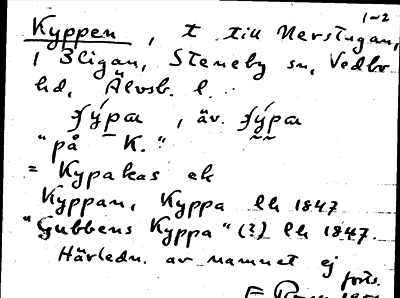 1-2
Kyppen, t till Nerstugan,
i Bligan, Steneby sn, Vedbo
hd, Älvsb. l.
, äv.
"på K."
= Kypakas ek
Kyppan, Kyppa lh 1847
"Gubbens Kyppa" (?) lh 1847.
Härledn. av namnet ej
forts.